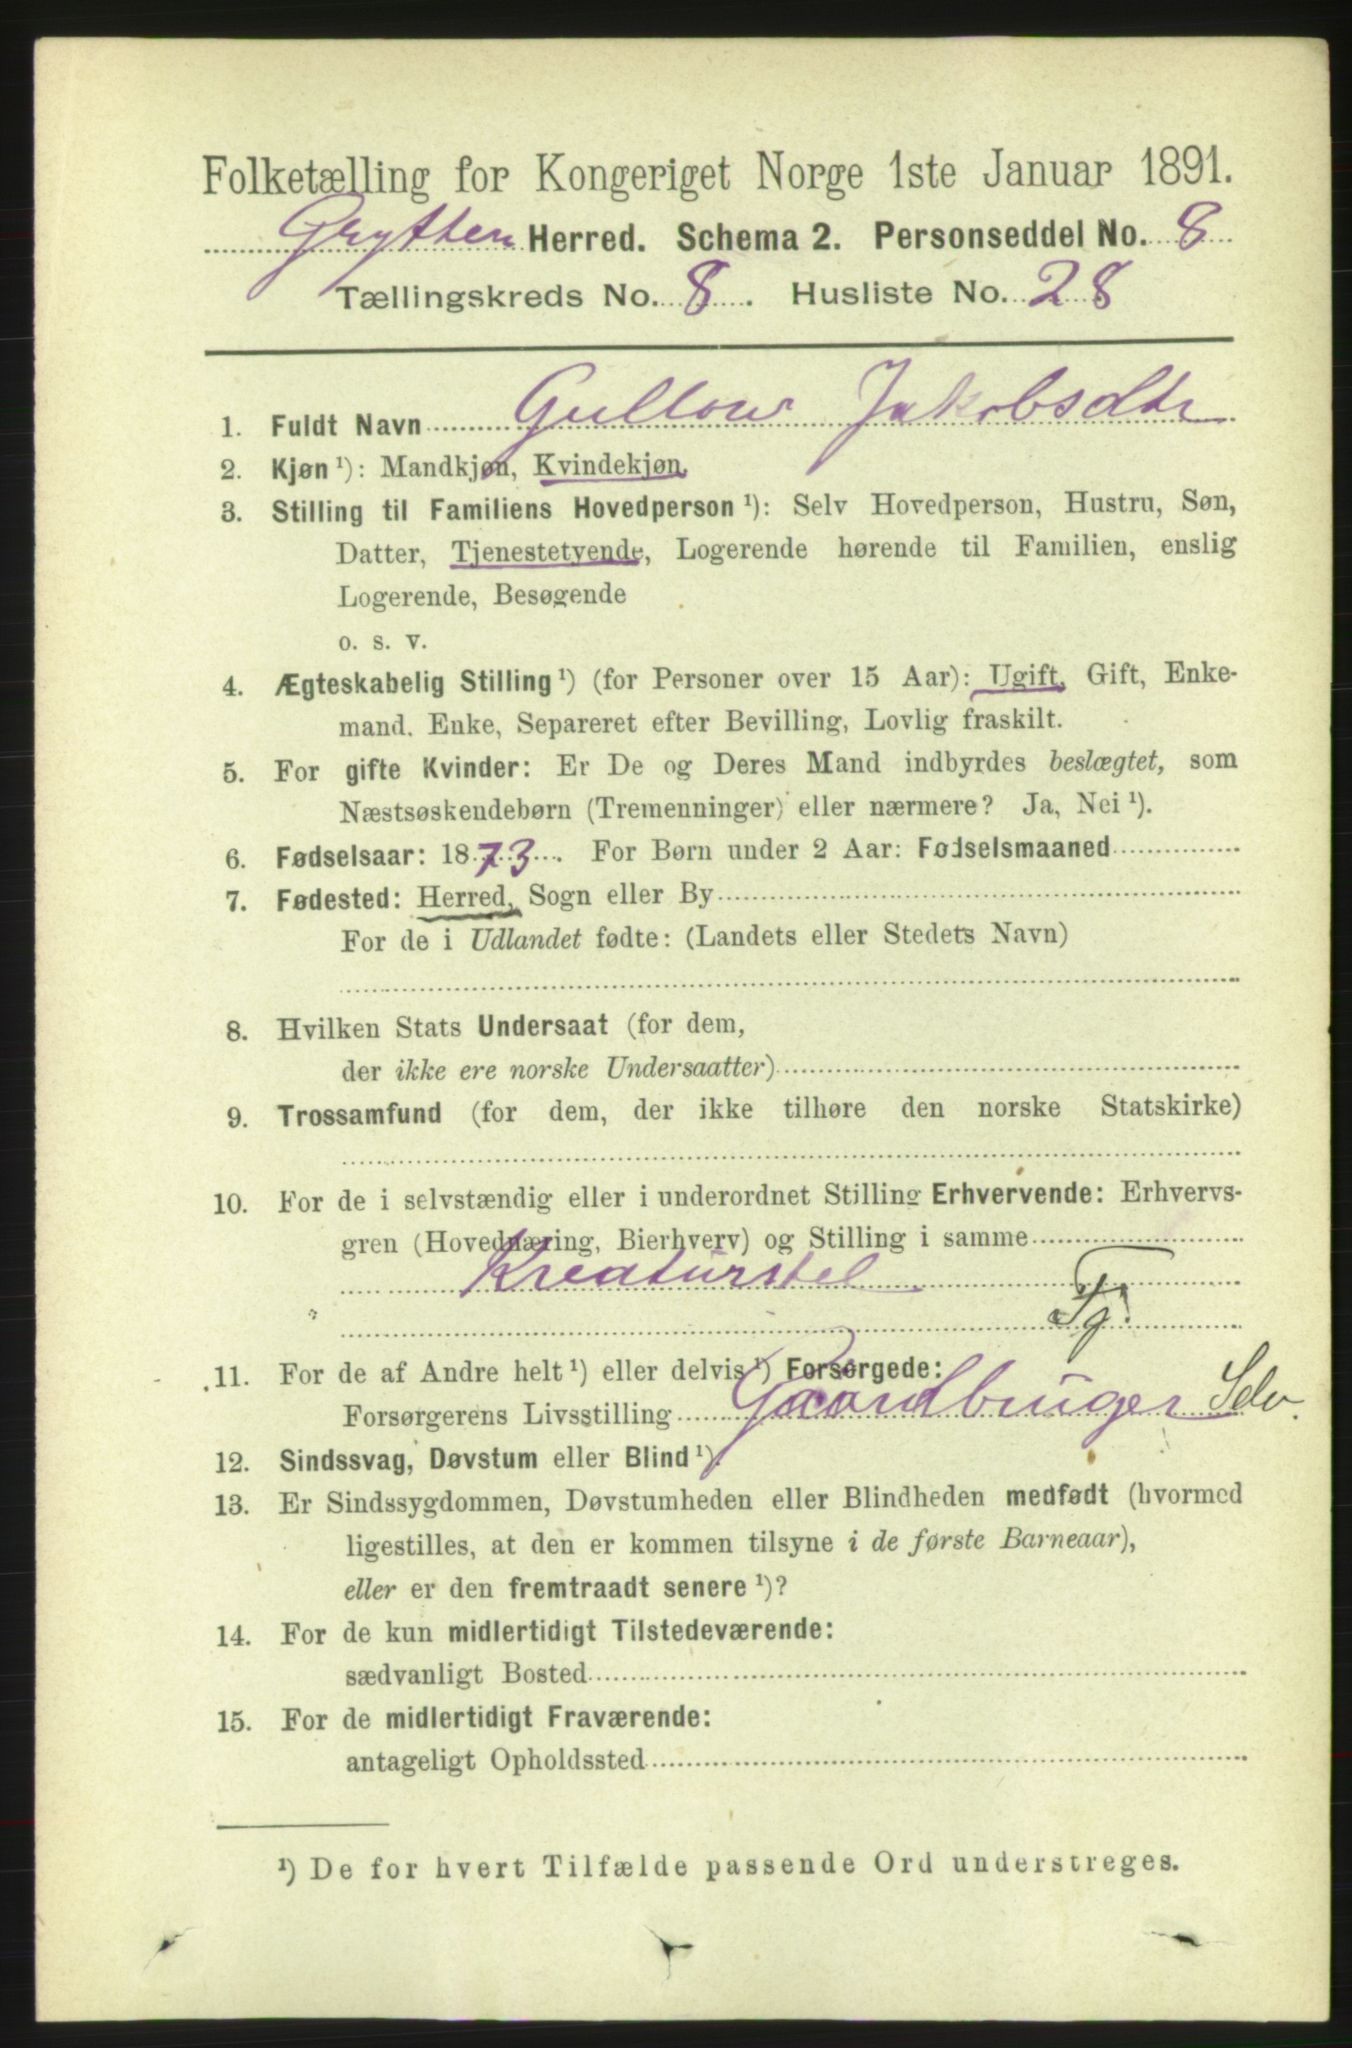 Folketælling for Kongeriget Norge 1ste Januar 1891.
Grytten Herred. Schema 2. Personseddel No. 8
Tællingskreds No. 8. Husliste No. 28
1. Fuldt Navn Gullow Jakobsdtr
2. Kjøn ¹): Mandkjøn, Kvindekjøn,
3. Stilling til Familiens Hovedperson ¹): Selv Hovedperson, Hustru, Søn,
Datter, Tjenestetyende, Logerende hørende til Familien, enslig
Logerende, Besøgende
o. s. v.
4. Ægteskabelig Stilling ¹) (for Personer over 15 Aar): Ugift, Gift, Enke-
mand, Enke, Separeret efter Bevilling, Lovlig fraskilt.
5. For gifte Kvinder: Er De og Deres Mand indbyrdes beslægtet, som
Næstsøskendebørn (Tremenninger) eller nærmere? Ja, Nei ¹).
6. Fødselsaar: 1873. For Børn under 2 Aar: Fødselsmaaned
7. Fødested: Herred, Sogn eller By
For de i Udlandet fødte: (Landets eller Stedets Navn)
8. Hvilken Stats Undersaat (for dem,
der ikke ere norske Undersaatter)
9. Trossamfund (for dem, der ikke tilhøre den norske Statskirke)
10. For de i selvstændig eller i underordnet Stilling Erhvervende: Erhvervs-
gren (Hovednæring, Bierhverv) og Stilling i samme
Kreaturstel
Tj.
11. For de af Andre helt ¹) eller delvis ¹) Forsørgede:
Forsørgerens Livsstilling Gaardbruger Selv.
12. Sindssvag, Døvstum eller Blind ¹).
13. Er Sindssygdommen, Døvstumheden eller Blindheden medfødt (hvormed
ligestilles, at den er kommen tilsyne i de første Barneaar),
eller er den fremtraadt senere ¹)?
14. For de kun midlertidigt Tilstedeværende:
sædvanligt Bosted
15. For de midlertidigt Fraværende:
antageligt Opholdssted
¹) De for hvert Tilfælde passende Ord understreges.